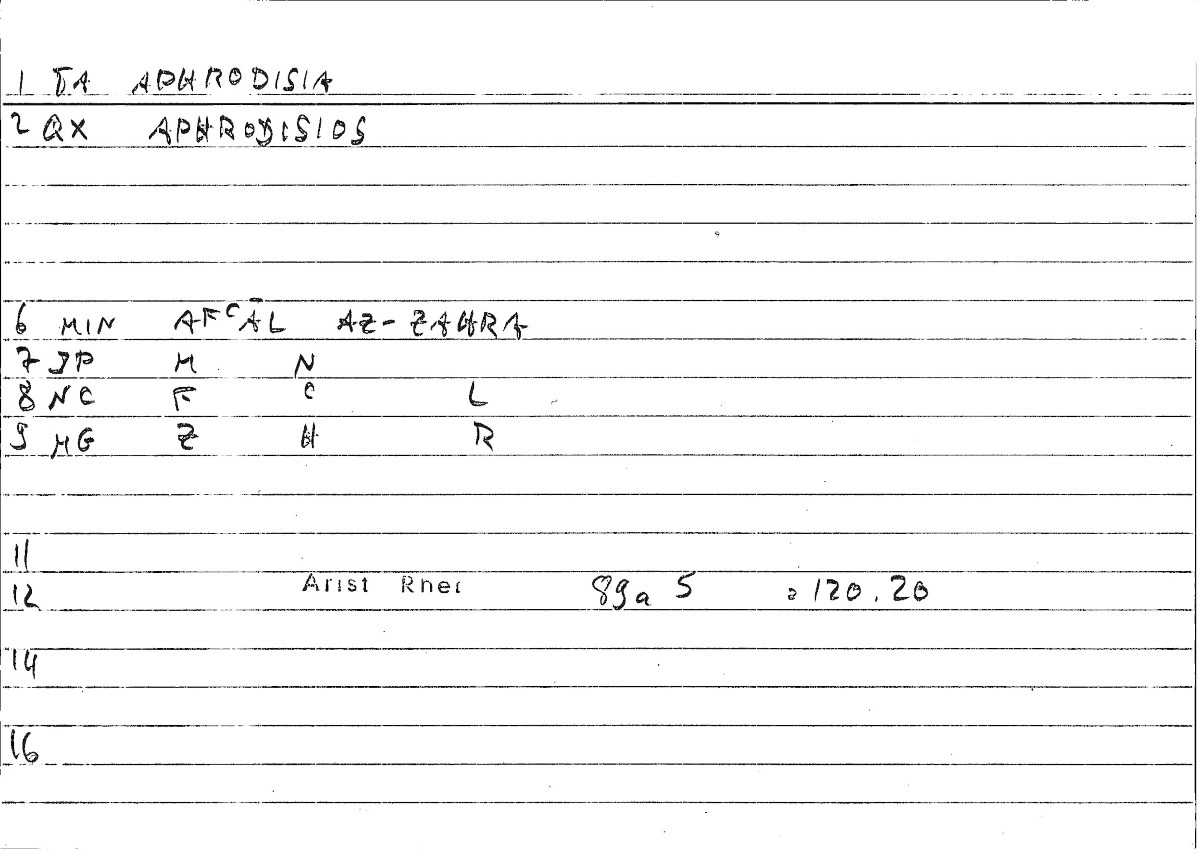 1 TA APHRODISIA
2 QX APHRODISIOS
6 MIN AFᶜĀL AZ-ZAHRA
7 JP M N
8 NC F ᶜ L
9 MG Z H R
11
12 Arist Rhet 89a 5 = 120.20
14
16